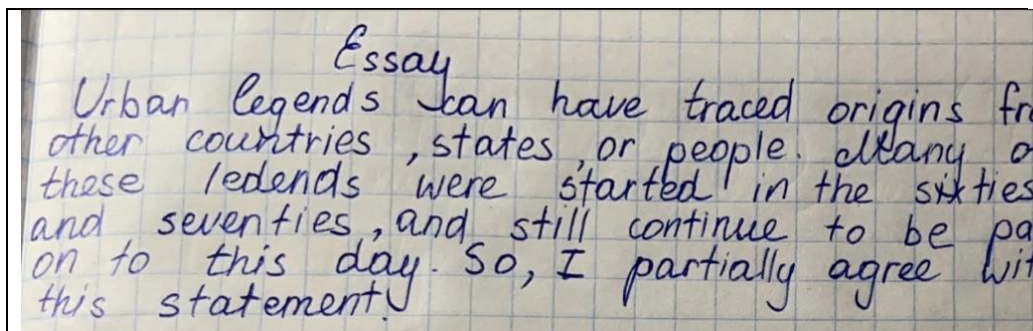 Essay
Urban legends can have traced origins fr
other countries, states, or people. Many o
these ledends were started in the sixties
and seventies, and still continue to be pa
on to this day. So, I partially agree wit
this statement.